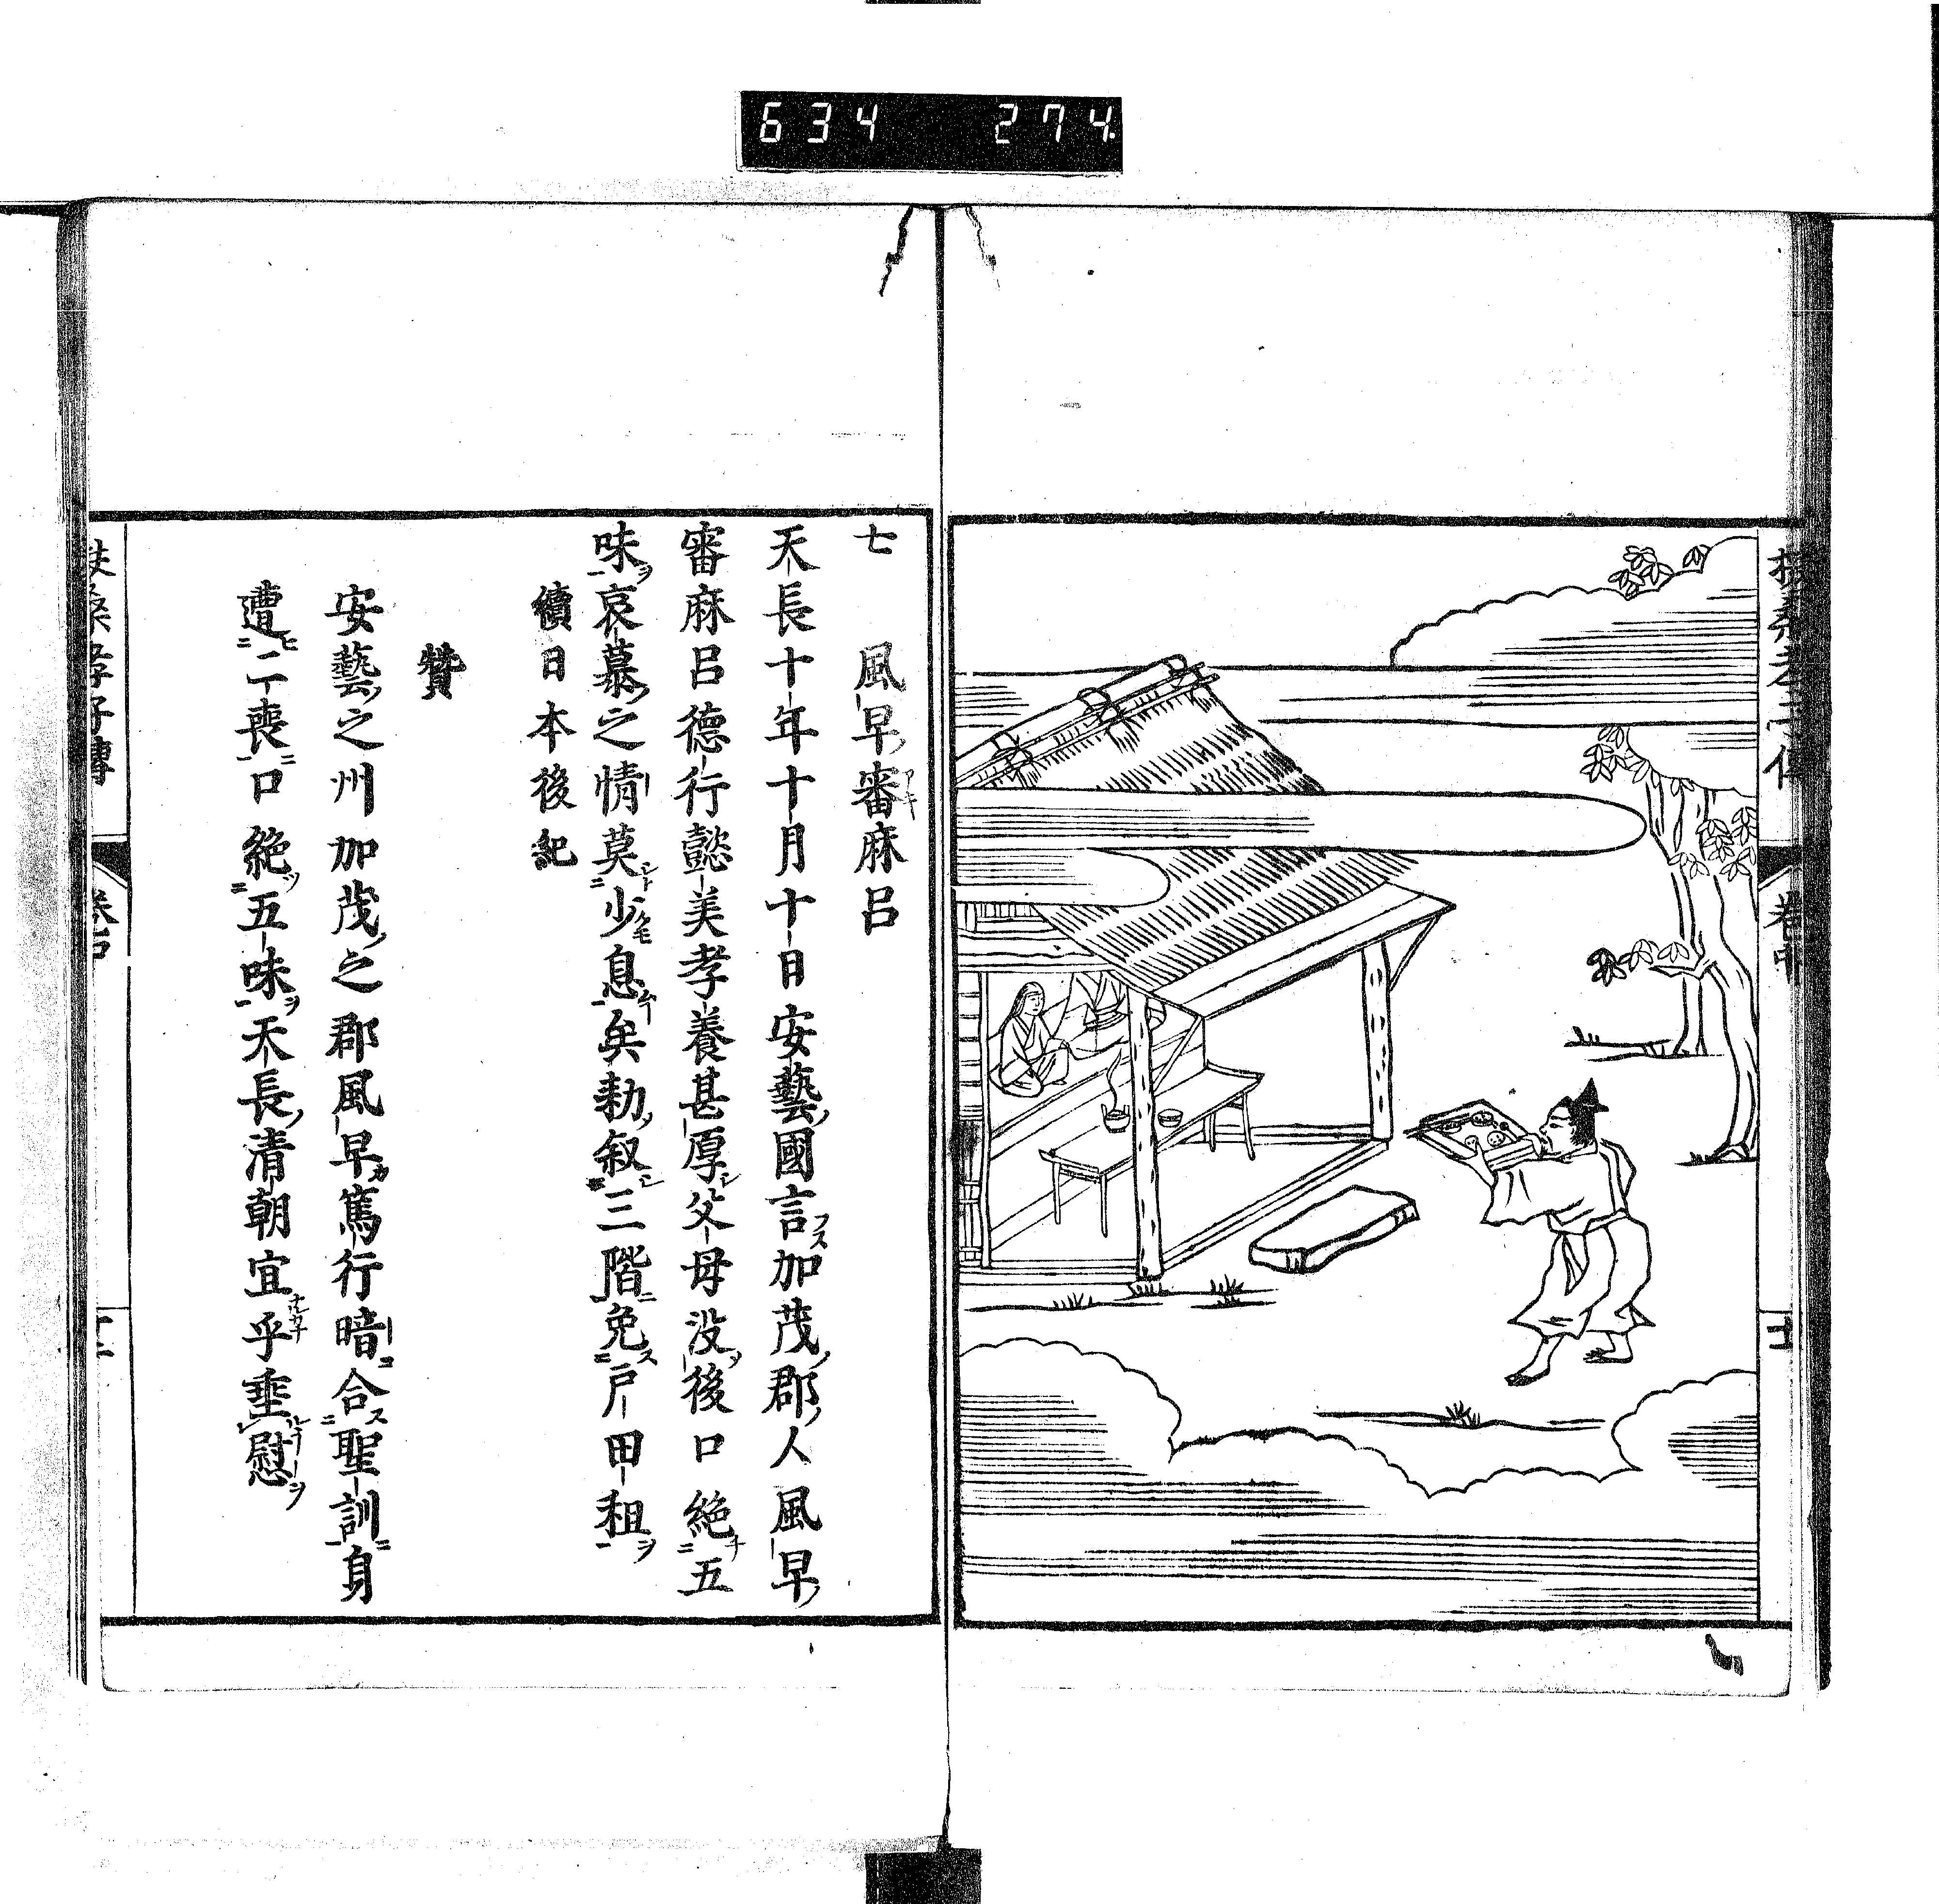 634 274
七 風早審麻呂
天長十年十月十日安藝國言加茂郡人風早
審麻呂德行懿美孝養甚厚父母没後口絶五
味哀慕之情莫少息矣勅叙三階免戸田租
續日本後紀
贊
安藝之州加茂之郡風早篤行暗合聖訓身
遭二喪口絶五味天長清朝宜乎垂慰